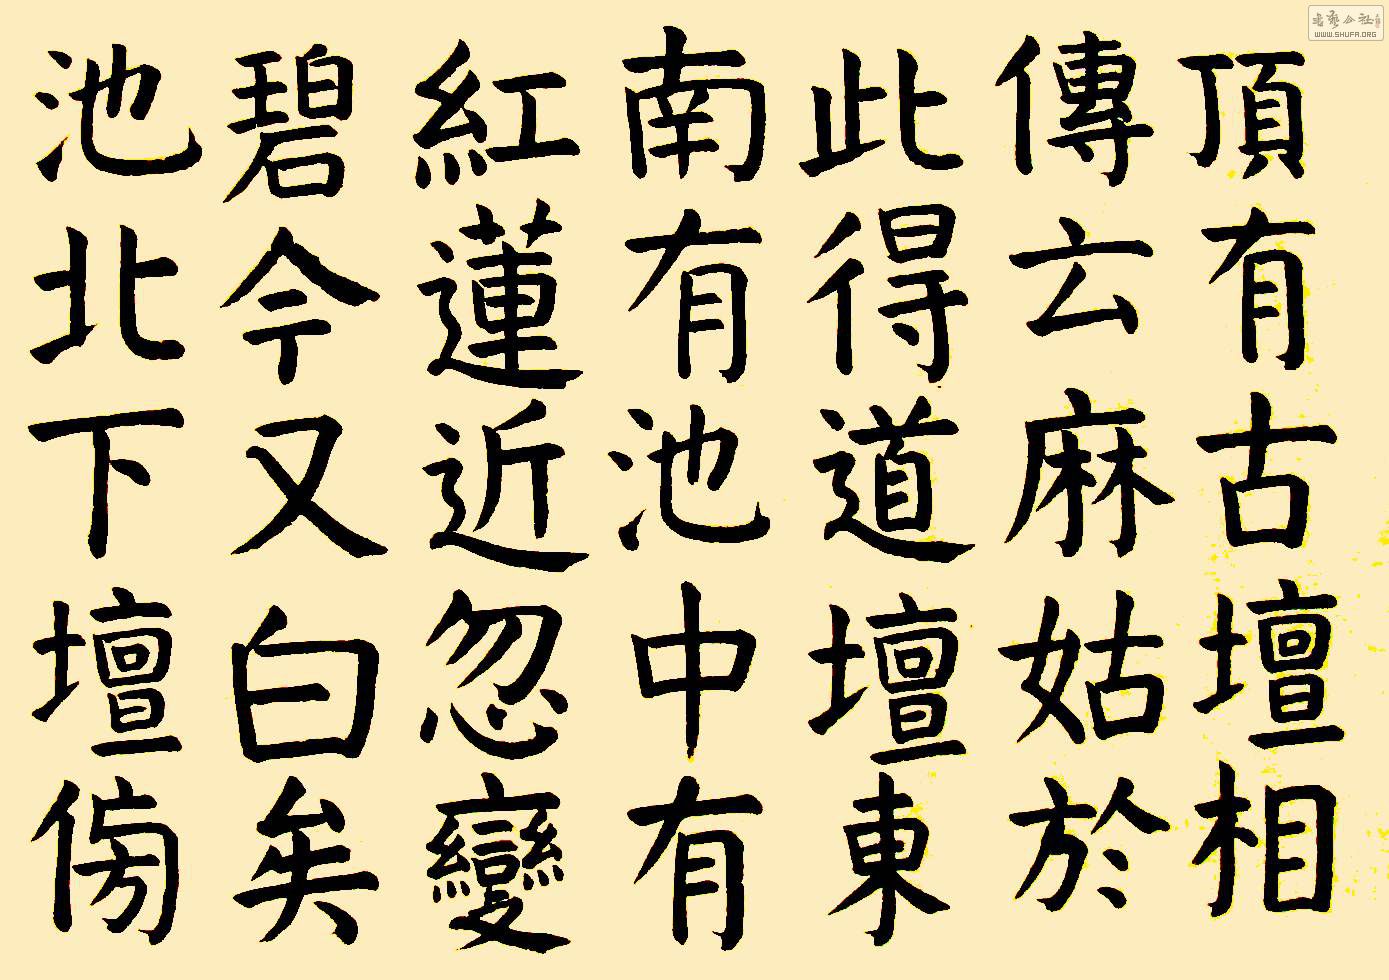 頂有古壇相
傳云麻姑於
此得道壇東
南有池中有
紅蓮近忽變
碧今又白矣
池北下壇傍
WWW.SHUFA.ORG